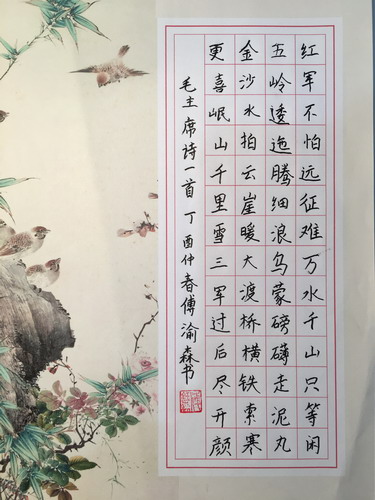 红军不怕远征难万水千山只等闲
五岭逶迤腾细浪乌蒙磅礴走泥丸
金沙水拍云崖暖大渡桥横铁索寒
更喜岷山千里雪三军过后尽开颜
毛主席诗一首丁酉仲春傅渝森书